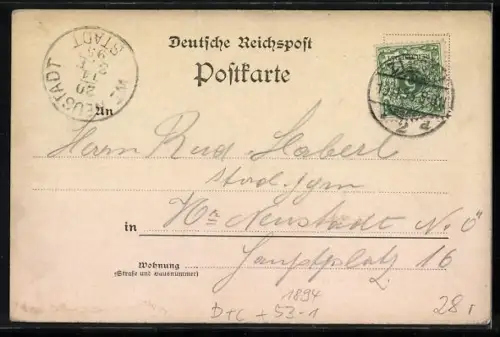 Deutsche Reichspost
Postkarte
W. NEUSTADT
STADT
20
95
An
Herrn Rud. Haberl
stud. gym
in Wr. Neustadt N.Ö
Hauptplatz 16
Wohnung
(Straße und Hausnummer)
1894
D+C +53-1
28,